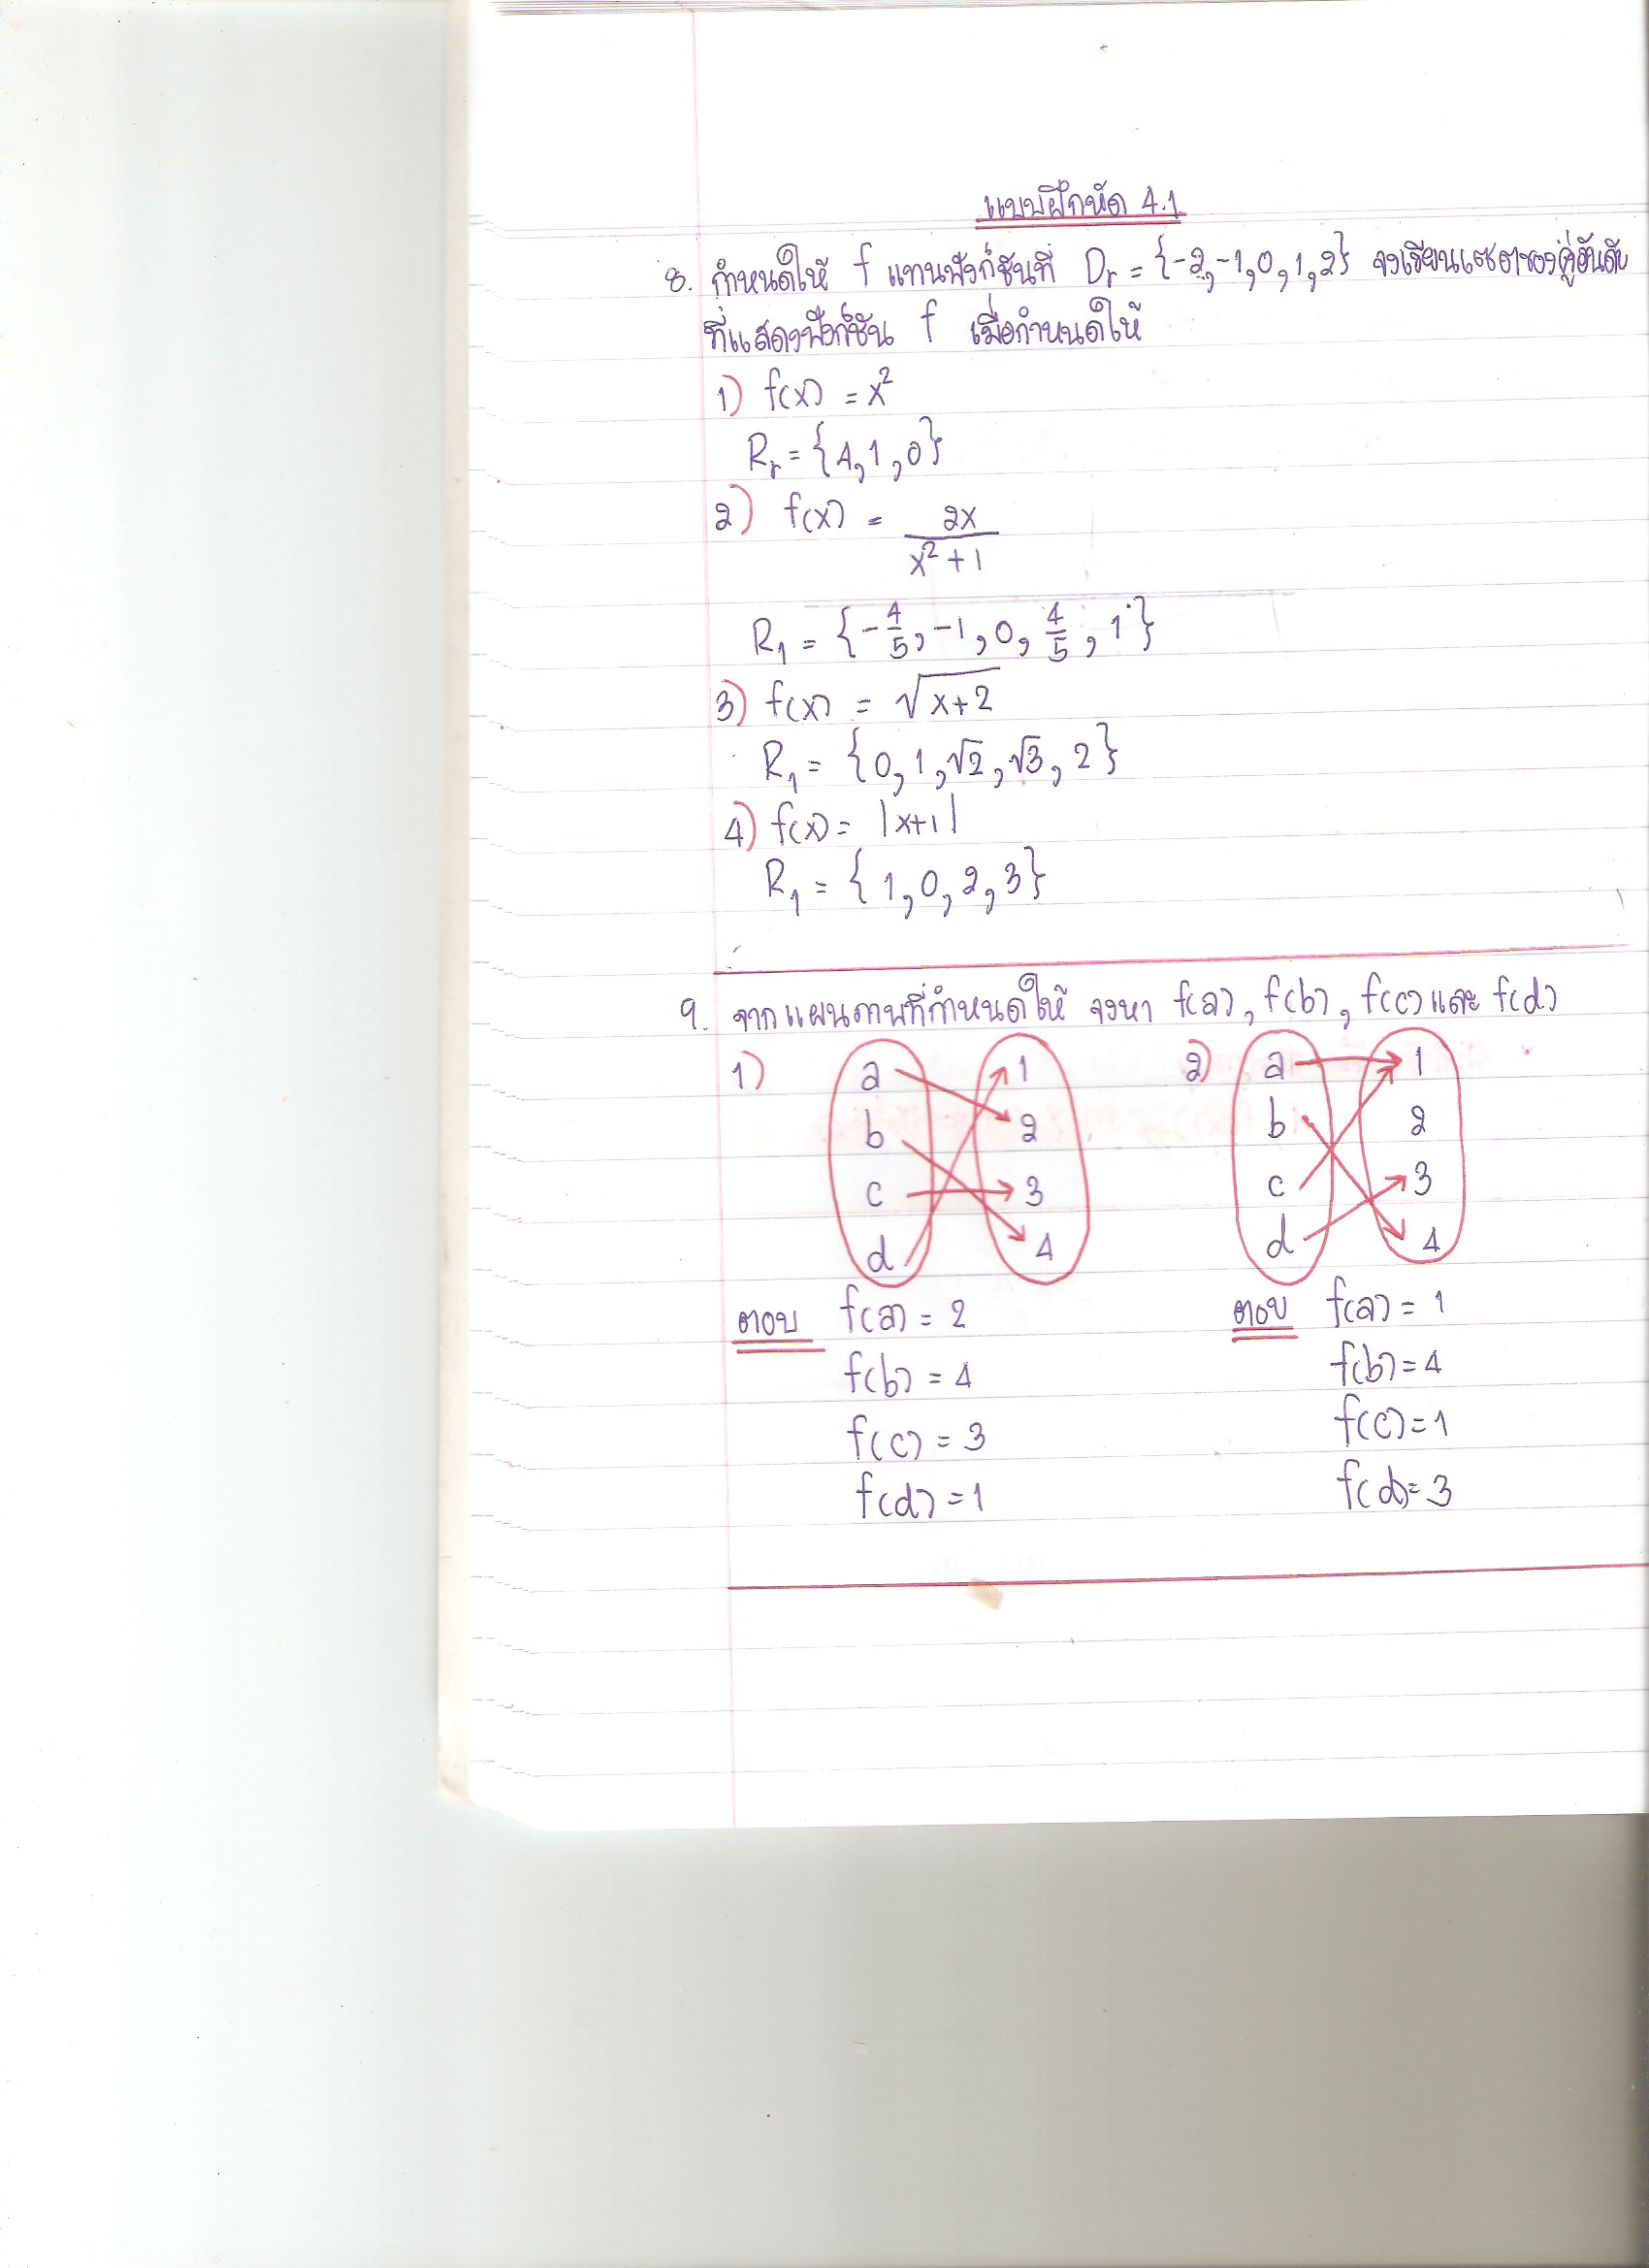 แบบฝึกหัด 4.1
8. กำหนดให้ f แทนฟังก์ชันที่ Dr = {-2,-1,0,1,2} จงเขียนเซตของคู่อันดับ
ที่แสดงฟังก์ชัน f เมื่อกำหนดให้
1) f(x) = x²
Rr = {4,1,0}
2) f(x) = 2x / x²+1
R1 = {-4/5, -1, 0, 4/5, 1}
3) f(x) = √(x+2)
R1 = {0, 1, √2, √3, 2}
4) f(x) = |x+1|
R1 = {1, 0, 2, 3}
9. จากแผนภาพที่กำหนดให้ จงหา f(a), f(b), f(c) และ f(d)
1) a 1 2) a 1
b 2 b 2
c 3 c 3
d 4 d 4
ตอบ f(a) = 2 ตอบ f(a) = 1
f(b) = 4 f(b) = 4
f(c) = 3 f(c) = 1
f(d) = 1 f(d) = 3